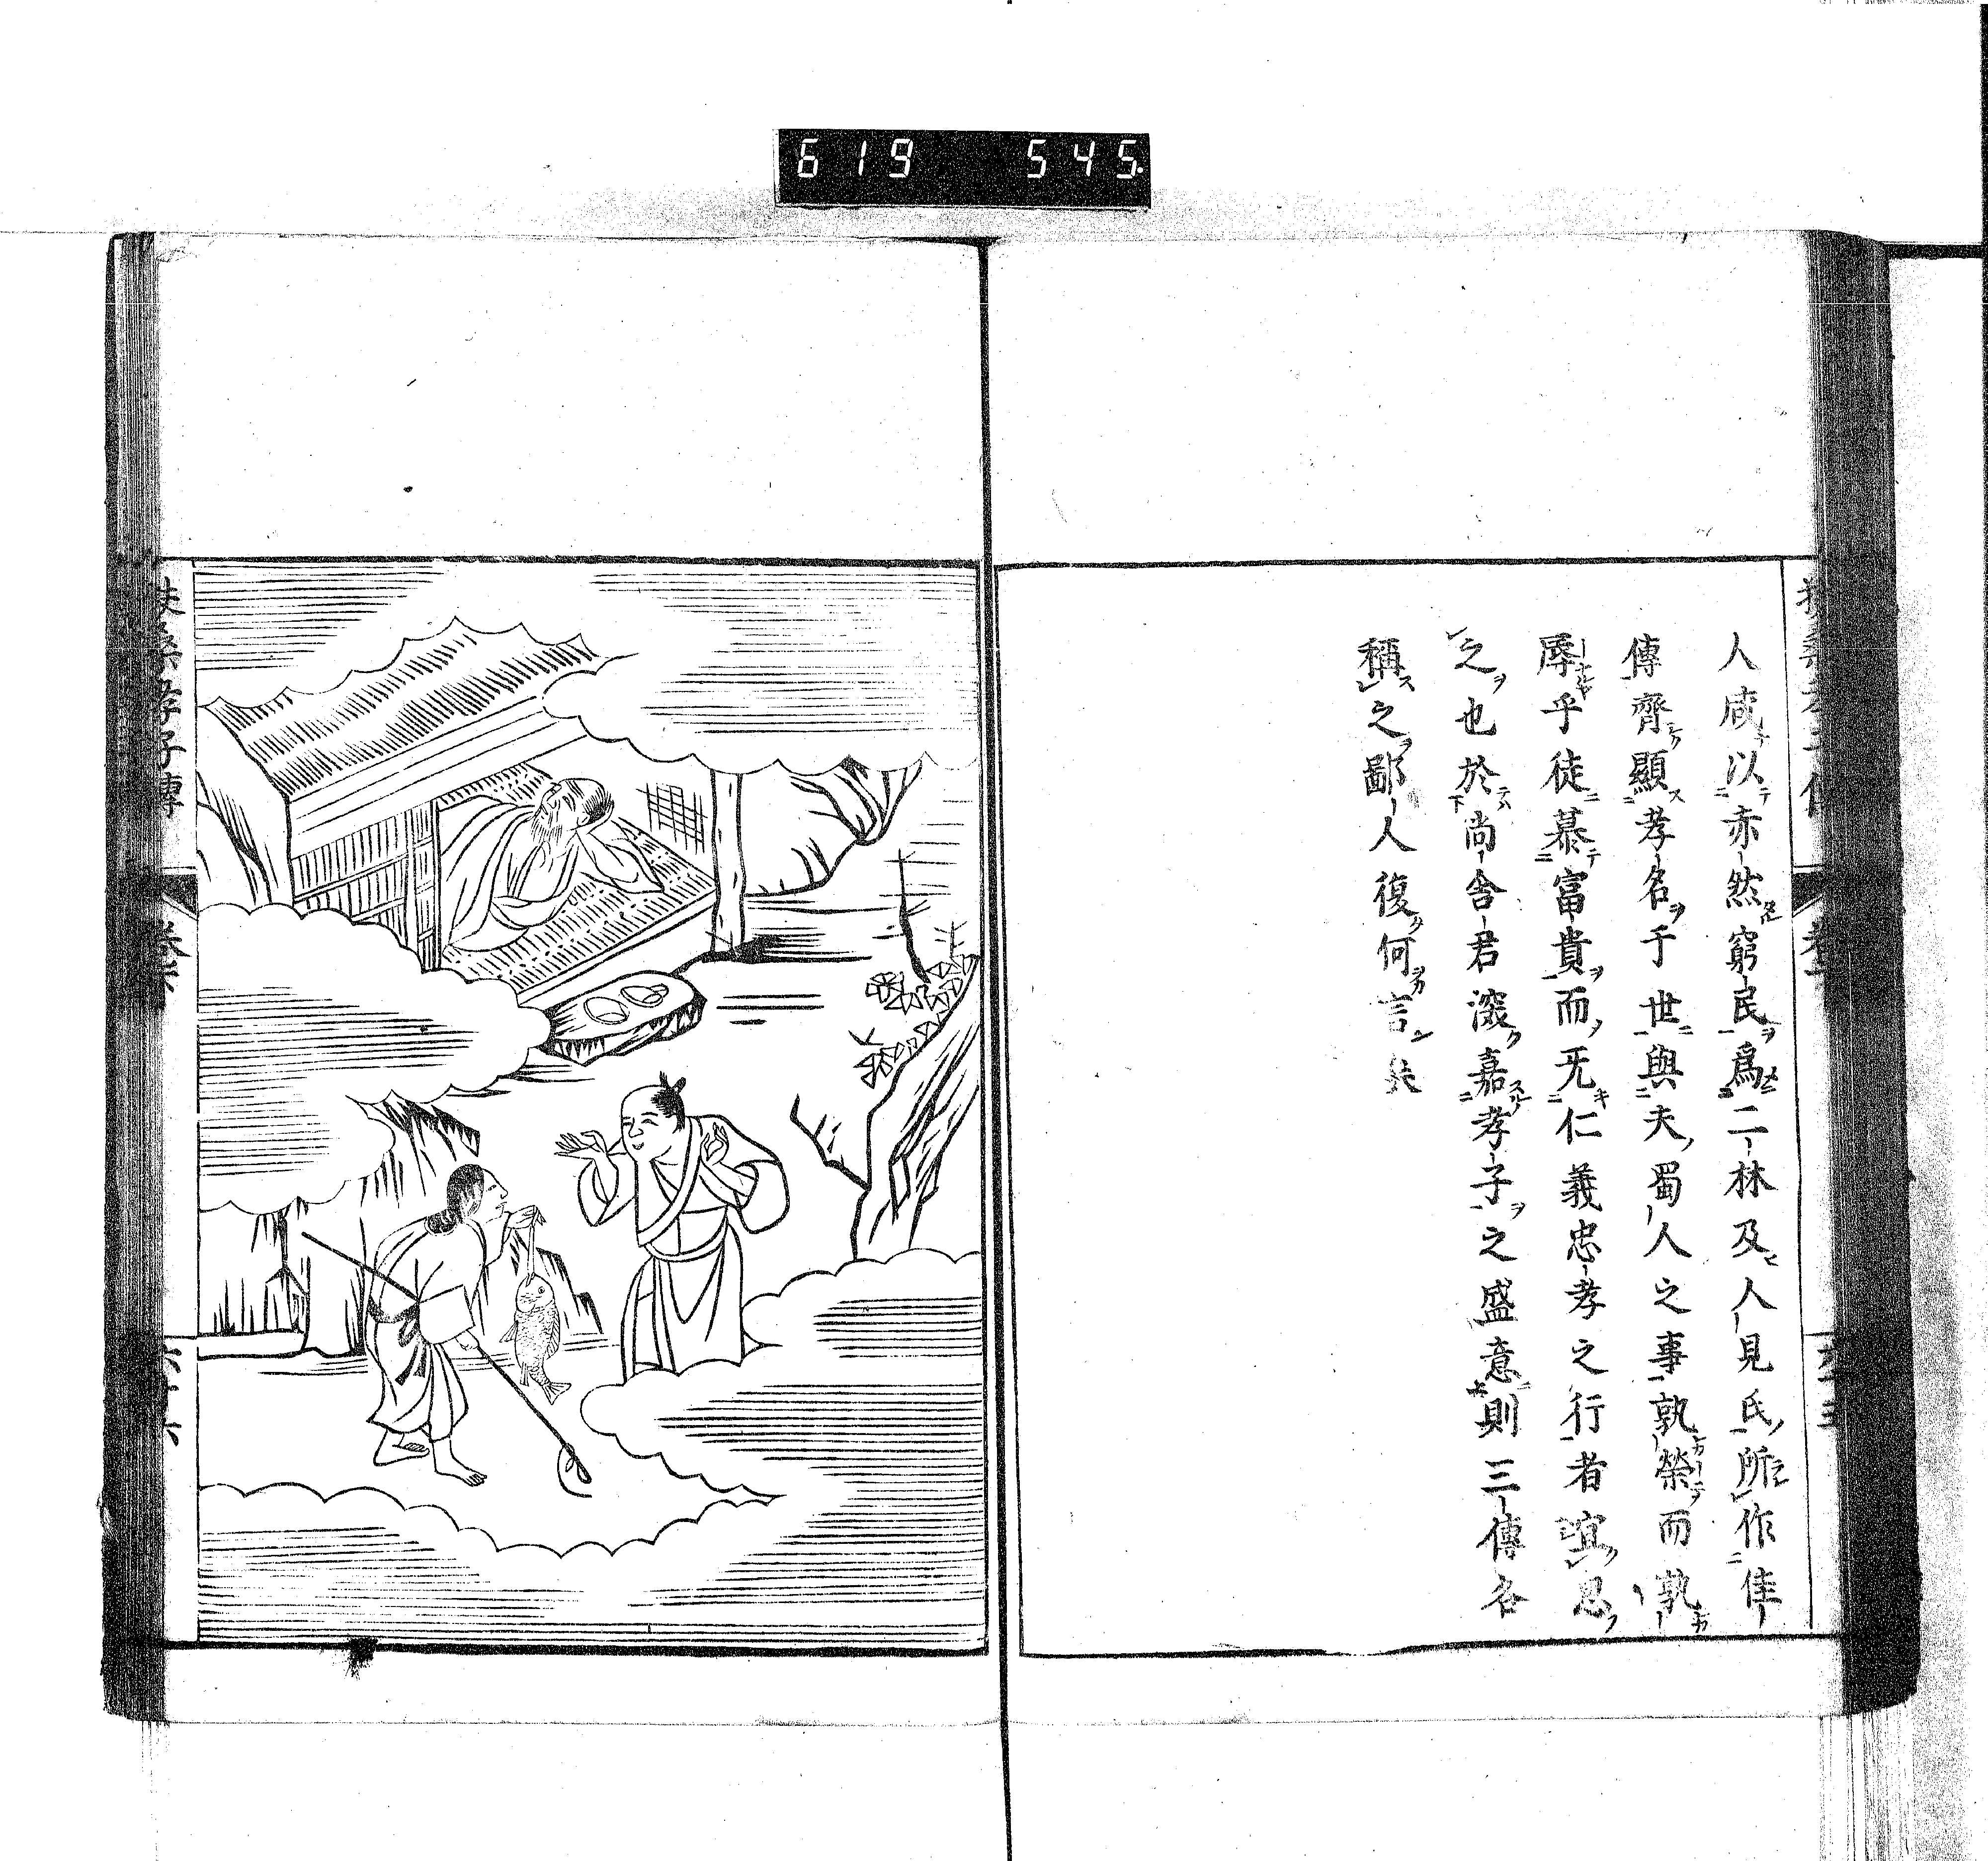 619 545
人咸以赤然窮民爲二林及人見氏所作佳
傳齊顯孝名于世與夫蜀人之事孰榮而孰
辱乎徒慕富貴而无仁義忠孝之行者寘思
之也於尚舎君深嘉孝子之盛意則三傳各
稱之鄙人復何言矣
扶桑孝子傳